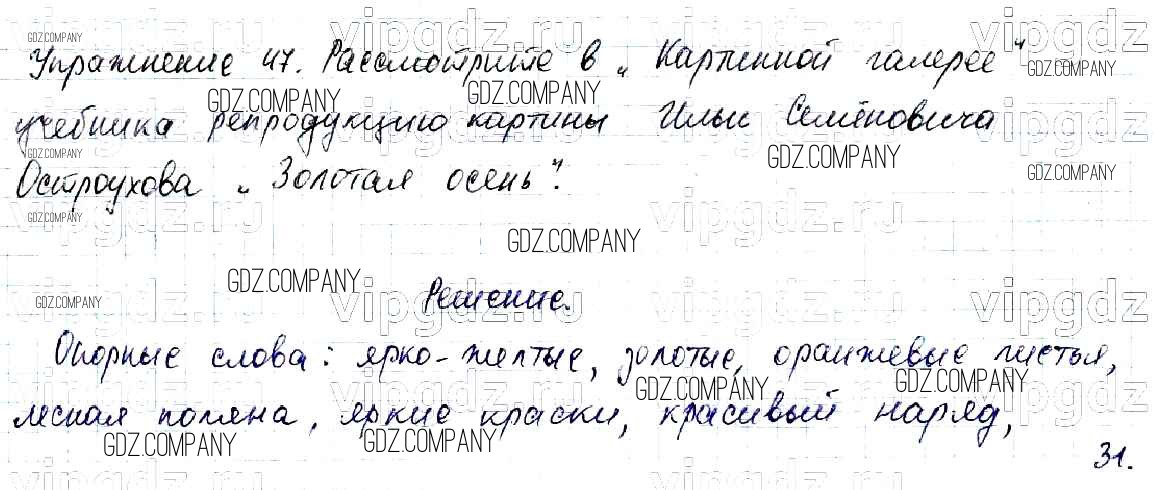 Упражнение 47. Рассмотрите в „Картинной галерее"
учебника репродукцию картины Ильи Семёновича
Остроухова „Золотая осень".
Решение.
Опорные слова: ярко-желтые, золотые, оранжевые листья,
лесная поляна, яркие краски, красивый наряд,
31.
GDZ.COMPANY
vipgdz.ru